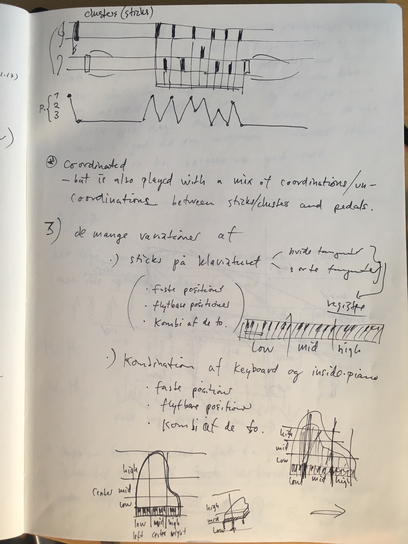 clusters (sticks)
P. { 1
2
3
⊛ Coordinated
– but is also played with a mix of coordinations/un-
coordinations between sticks/clusters and pedals.
3) de mange variationer af
·) sticks på klaviaturet
hvide tangenter
sorte tangenter
· faste positioner
· flytbare positioner
· Kombi af de to.
register
Low mid high
·) Kombination af keyboard og inside-piano
· faste positioner
· flytbare positioner
· Kombi af de to.
high
mid
Low
Low mid high
high
center mid
Low
low mid high
left center right
high
mid
Low